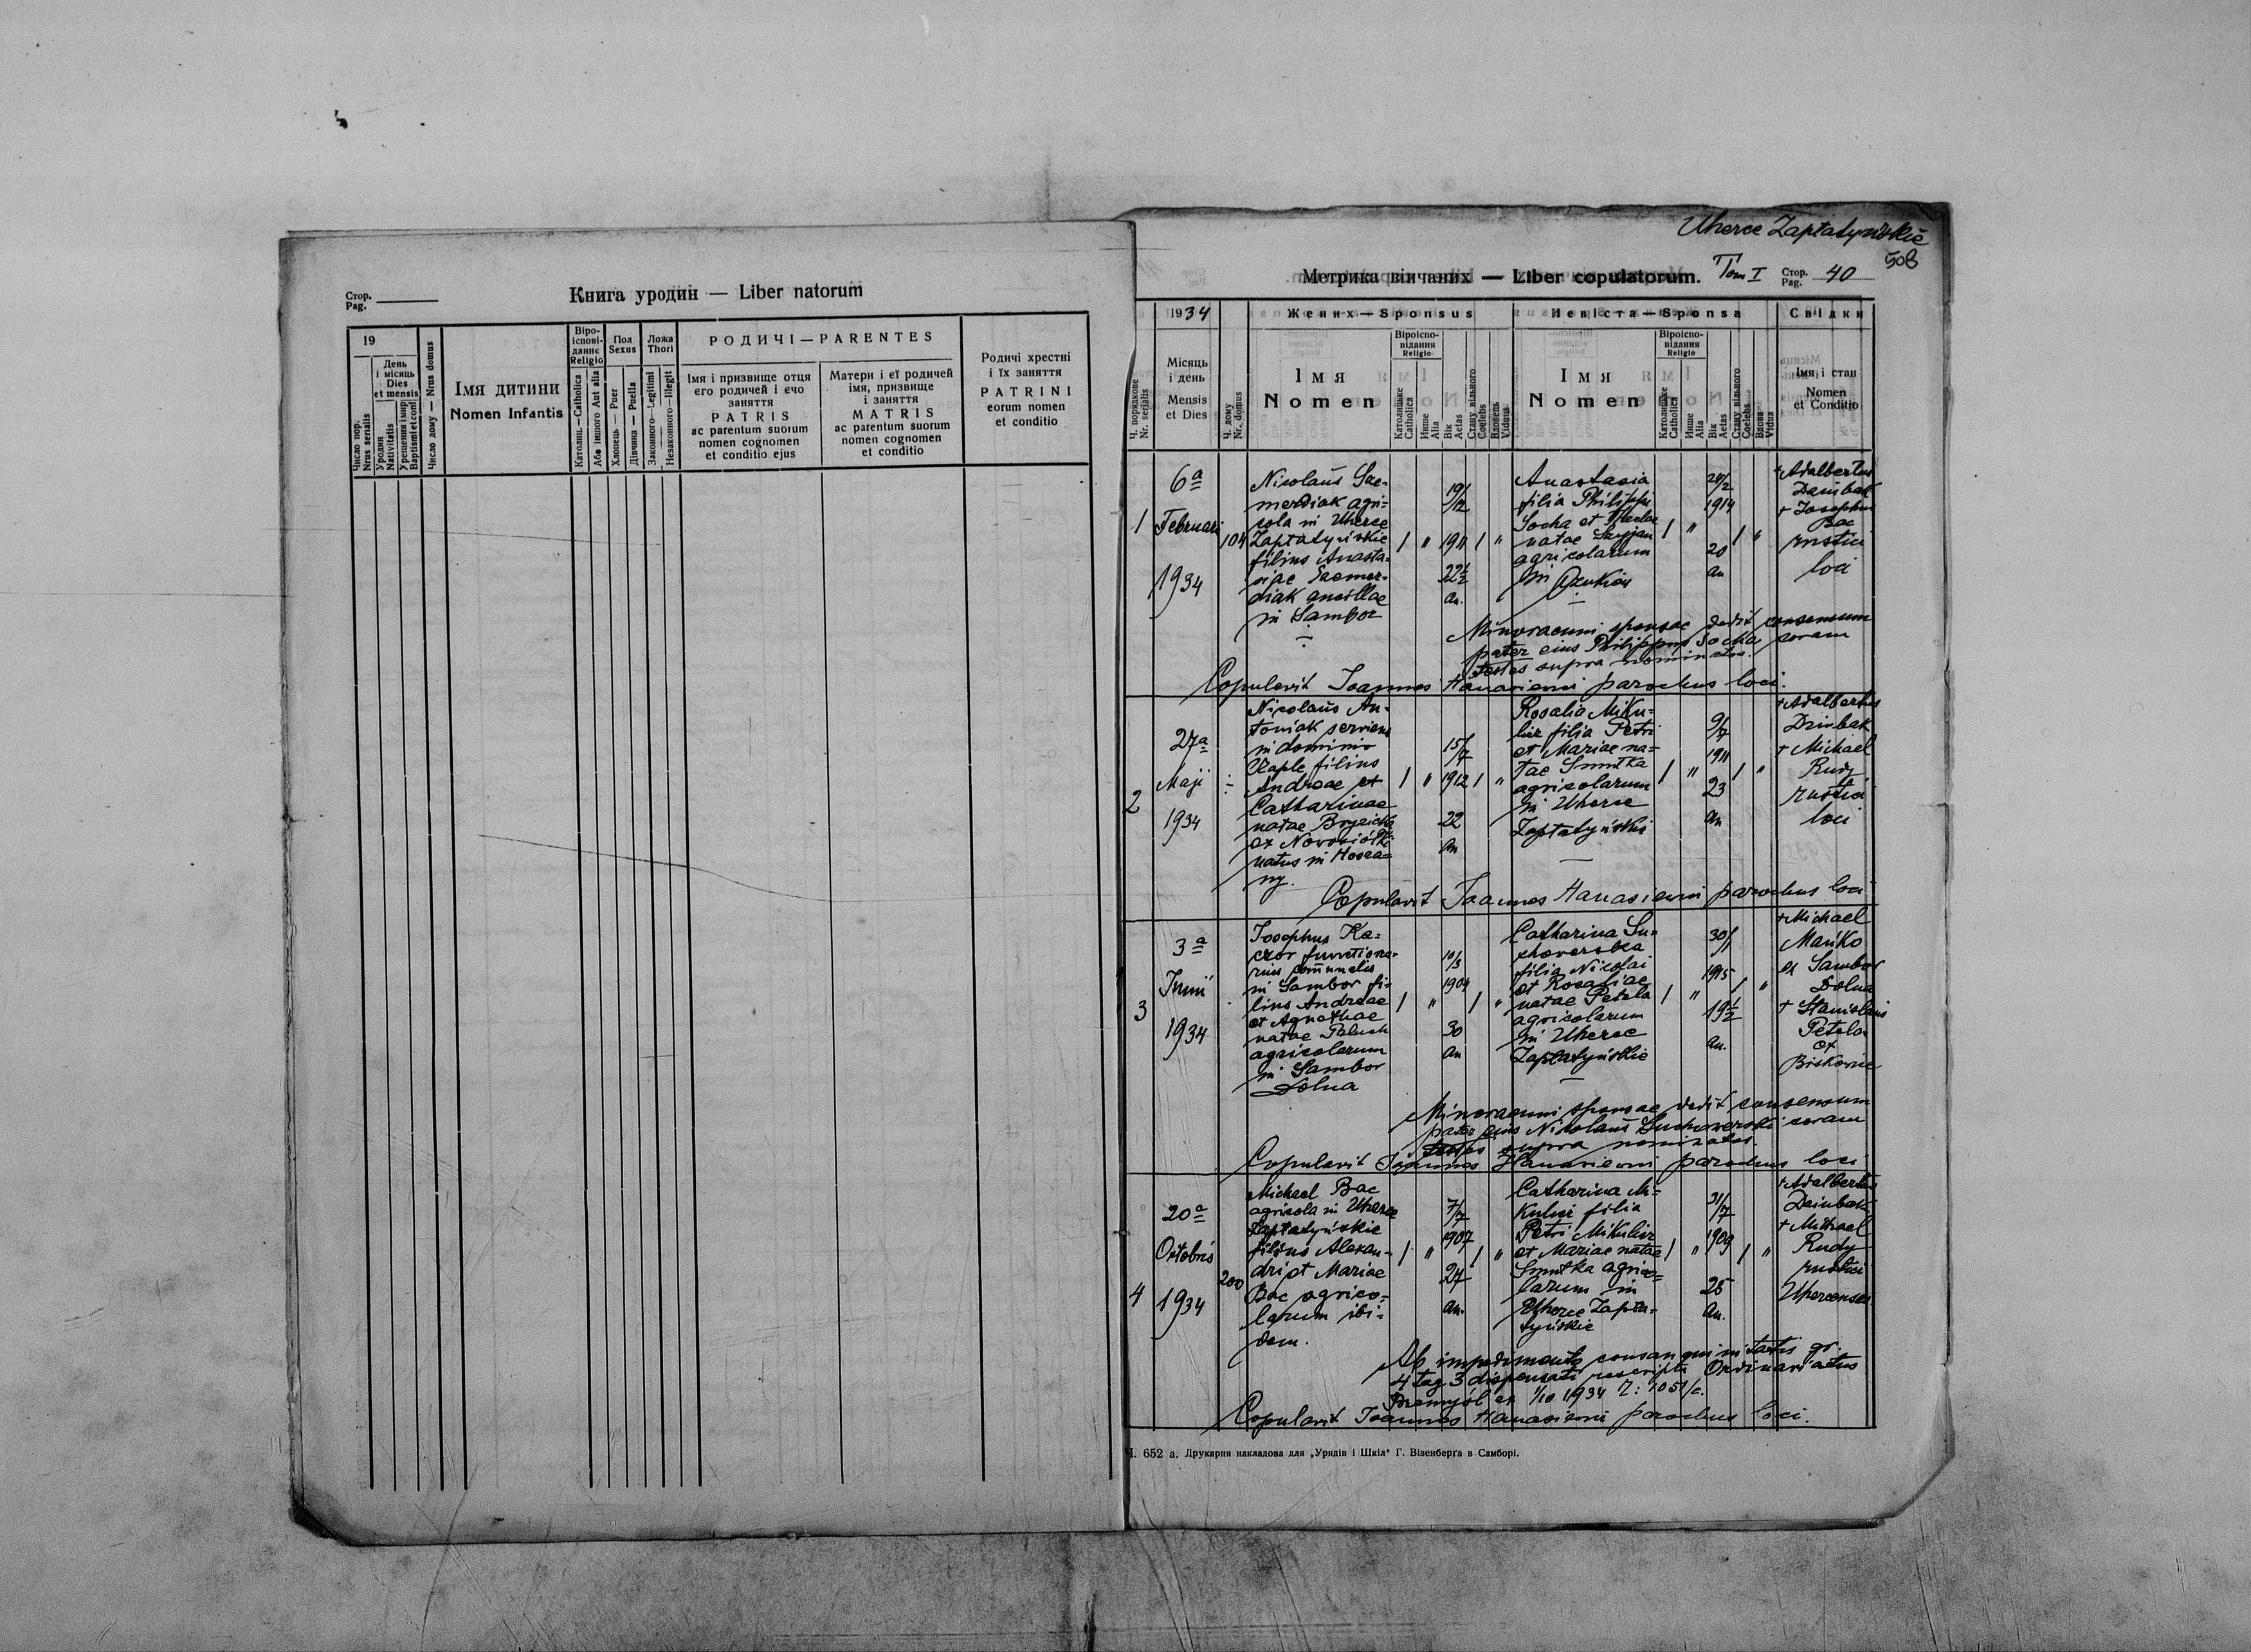 Стор.
Pag.
Книга уродин — Liber natorum
19
Число пор.
Nrus serialis
День
і місяць
Dies
et mensis
Уродин
Nativitatis
Урещення і мир
Baptismi et conf
Число дому — Nrus domus
Імя дитини
Nomen Infantis
Віро-
іспові-
данне
Religio
Католиц. — Catholica
Або іншого Aut alia
Пол
Sexus
Хлопець — Puer
Дівчина — Puella
Ложа
Thori
Законного — Legitimi
Незаконного — Illegit
РОДИЧІ — PARENTES
Імя і призвище отця
єго родичей і єчо
заняття
PATRIS
ac parentum suorum
nomen cognomen
et conditio ejus
Матери і єї родичей
імя, призвище
і заняття
MATRIS
ac parentum suorum
nomen cognomen
et conditio
Родичі хрестні
і їх заняття
PATRINI
eorum nomen
et conditio
Uherce Zapłatyńskie
508
Метрика вінчаних — Liber copulatorum.
Tom I
Стор.
Pag.
40
1934
Жених — Sponsus
Невіста — Sponsa
Свідки
Ч. порядкове
Nr. serialis
Місяць
і день
Mensis
et Dies
Ч. дому
Nr. domus
Імя
Nomen
Віроіспо-
відання
Religio
Католицьке
Catholica
Инше
Alia
Вік
Aetas
Стану вільного
Coelebs
Вдовець
Viduus
Імя
Nomen
Віроіспо-
відання
Religio
Католицьке
Catholica
Инше
Alia
Вік
Aetas
Стану вільного
Coelebs
Вдова
Vidua
Імя і стан
Nomen
et Conditio
1
6a
Februari
1934
104
Nicolaus Sze-
merdiak agri-
cola in Uherce
Zapłatyńskie
filius Anasta-
siae Szemer-
diak ancillae
in Sambor
19/12
1911
22½
an.
Anastasia
filia Philippi
Socha et Theclae
natae
agricolarum
in
1914
20
an
+ Adalbertus
+ Josephus
Bac
rustici
loci
Minorenni sponsae dedit consensum
pater eius Philippus Socha coram
testes supra nominatos.
Copulavit Joannes Hanasiewi parochus loci.
2
27a
Maji
1934
Nicolaus An-
toniak serviens
in dominio
Czaple filius
Andreae et
Catharinae
natae
ex
natus in Hosza-
ny.
15/7
1912
22
an
Rosalia Miku-
licz filia Petri
et Mariae na-
tae Smutka
agricolarum
in Uherce
Zapłatyńskie
9/7
1911
23
an
+ Adalbertus
Dziubak
+ Michael
Rudy
rustici
loci
Copulavit Joannes Hanasiewi parochus loci
3
3a
Junii
1934
Josephus Ka-
czor functiona-
rius communalis
in Sambor fi-
lius Andreae
et Agnethae
natae Paluch
agricolarum
in Sambor
Dolna
10/3
1904
30
an
Catharina Su-
chowerska
filia Nicolai
et Rosaliae
natae Petela
agricolarum
in Uherce
Zapłatyńskie
30/1
1915
19½
an.
+ Michael
Mańko
ex Sambor
Dolna
+ Stanislaus
Petela
ex
Biskowice
Minorenni sponsae dedit consensum
pater eius Nicolaus Suchowerski coram
testes supra nominatos.
Copulavit Joannes Hanasiewi parochus loci
4
20a
Octobris
1934
200
Michael Bac
agricola in Uherce
Zapłatyńskie
filius Alexan-
dri et Mariae
Bac agrico-
larum ibi-
dem.
7/7
1907
27
an.
Catharina Mi-
kulicz filia
Petri Mikulicz
et Mariae natae
Smutka agrico-
larum in
Uherce Zapła-
tyńskie
31/7
1909
25
an.
+ Adalbertus
Dziubak
+ Michael
Rudy
rustici
Uhercenses
Ab impedimento consanguinitatis gr.
4 tag 3 dispensati rescripto Ordinariatus
Przemyśl ex 1/10 1934 L: 1051/c.
Copulavit Joannes Hanasiewi parochus loci.
Ч. 652 а. Друкарня накладова для „Урядів і Шкіл" Г. Візенберґа в Самборі.